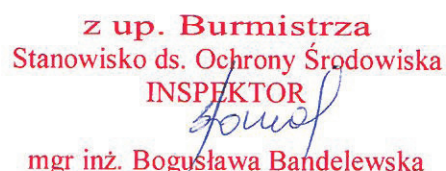 z up. Burmistrza
Stanowisko ds. Ochrony Środowiska
INSPEKTOR
mgr inż. Bogusława Bandelewska